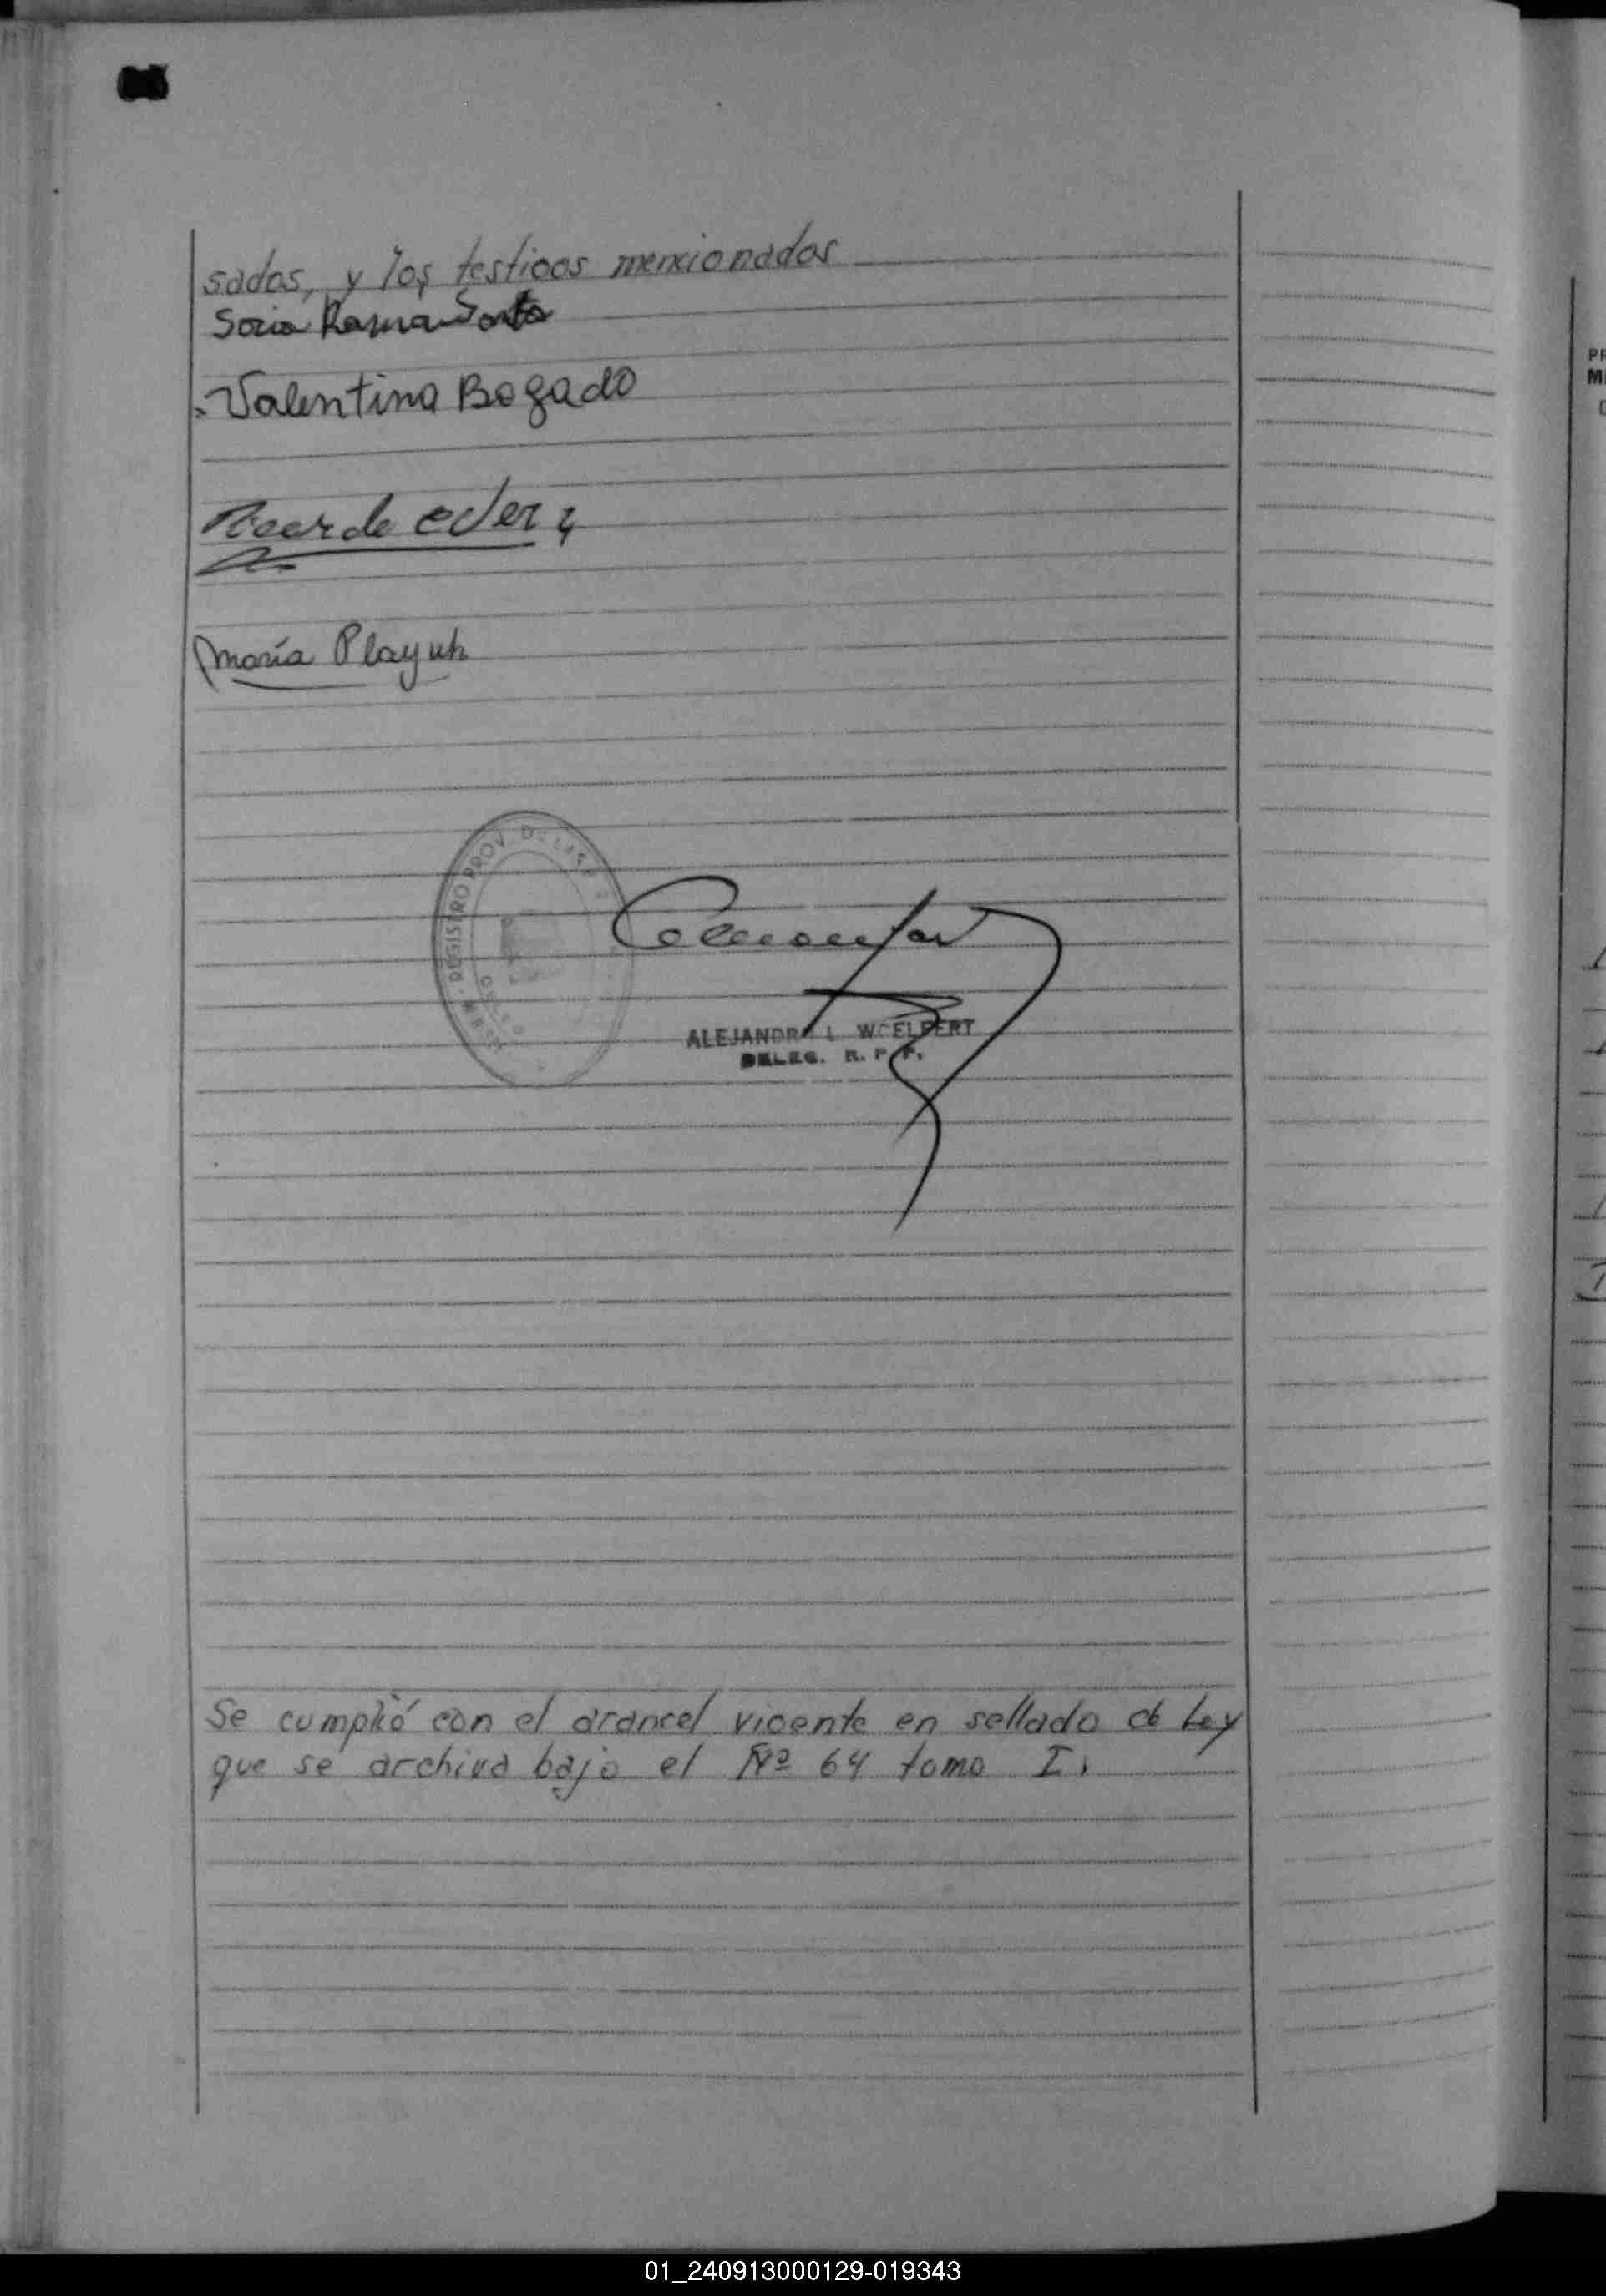 sados, y los testigos mencionados
Soria Ramona Santa
Valentina Bogado
Ricardo
María Playuk
REGISTRO PROV. DE LAS
ALEJANDRO L. WOELFERT
DELEG. R. P. P.
Se cumplió con el arancel vigente en sellado de Ley
que se archiva bajo el Nº 64 tomo I.
01_240913000129-019343